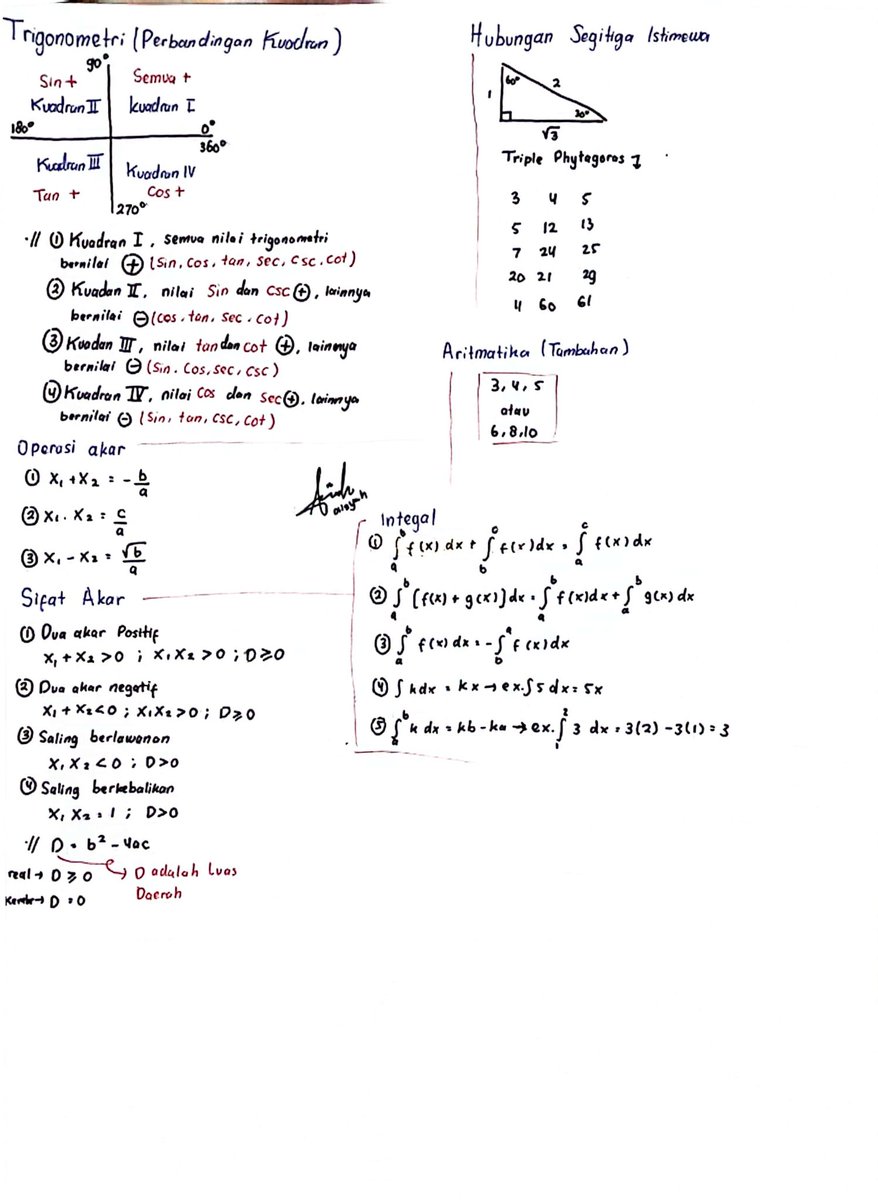 Trigonometri (Perbandingan Kuadran)
90°
Sin +
Semua +
Kuadran II
kuadran I
180°
0°
360°
Kuadran III
Kuadran IV
Tan +
Cos +
270°
·// ① Kuadran I, semua nilai trigonometri
bernilai ⊕ (sin, cos, tan, sec, csc, cot)
② Kuadan II, nilai Sin dan csc ⊕, lainnya
bernilai ⊖ (cos, tan, sec, cot)
③ Kuadan III, nilai tan dan cot ⊕, lainnya
bernilai ⊖ (sin, cos, sec, csc)
④ Kuadran IV, nilai cos dan sec ⊕, lainnya
bernilai ⊖ (sin, tan, csc, cot)
Operasi akar
① x₁ + x₂ = -b/a
② x₁ . x₂ = c/a
③ x₁ - x₂ = √b/a
Sifat Akar
① Dua akar Positif
x₁ + x₂ > 0 ; x₁x₂ > 0 ; D ≥ 0
② Dua akar negatif
x₁ + x₂ < 0 ; x₁x₂ > 0 ; D ≥ 0
③ Saling berlawanan
x₁x₂ < 0 ; D > 0
④ Saling berkebalikan
x₁x₂ = 1 ; D > 0
·// D = b² - 4ac
real → D ≥ 0
D adalah Luas
Daerah
→ D = 0
Hubungan Segitiga Istimewa
60°
2
1
30°
√3
Triple Phytagoras
3 4 5
5 12 13
7 24 25
20 21 29
4 60 61
Aritmatika (Tambahan)
3, 4, 5
atau
6, 8, 10
aisyah
Integal
① ∫ₐᵇ f(x) dx + ∫_b^c f(x) dx = ∫ₐᶜ f(x) dx
② ∫ₐᵇ [f(x) + g(x)] dx = ∫ₐᵇ f(x) dx + ∫ₐᵇ g(x) dx
③ ∫ₐᵇ f(x) dx = -∫_b^a f(x) dx
④ ∫ k dx = kx → ex. ∫ 5 dx = 5x
⑤ ∫ₐᵇ k dx = kb - ka → ex. ∫₁² 3 dx = 3(2) - 3(1) = 3